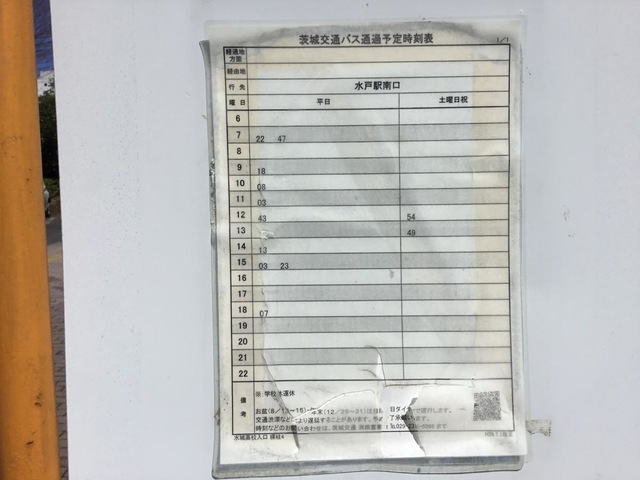 茨城交通バス通過予定時刻表
1/1
経過地
方面
経由地
行先 水戸駅南口
曜日 平日 土曜日祝
6
7 22 47
8
9 18
10 08
11 03
12 43 54
13 49
14 13
15 03 23
16
17
18 07
19
20
21
22
備考
お盆(8/13~15)
年末(12/29~31)
交通渋滞などにより遅延することがあります。
時刻などのお問い合わせは、茨城交通
水城高校入口